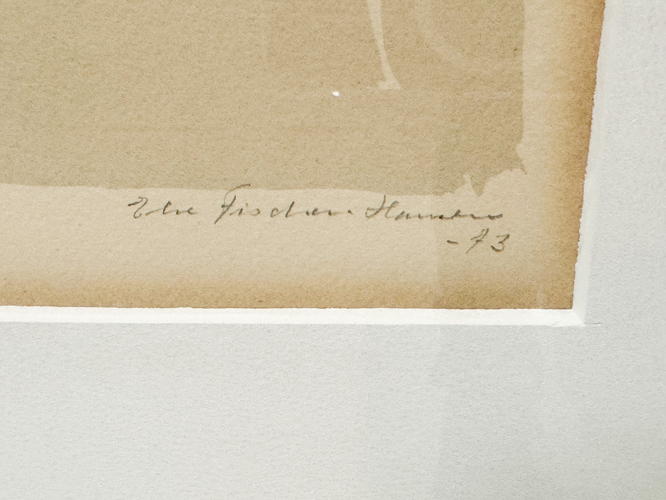 Else Fischer-Hansen
-73